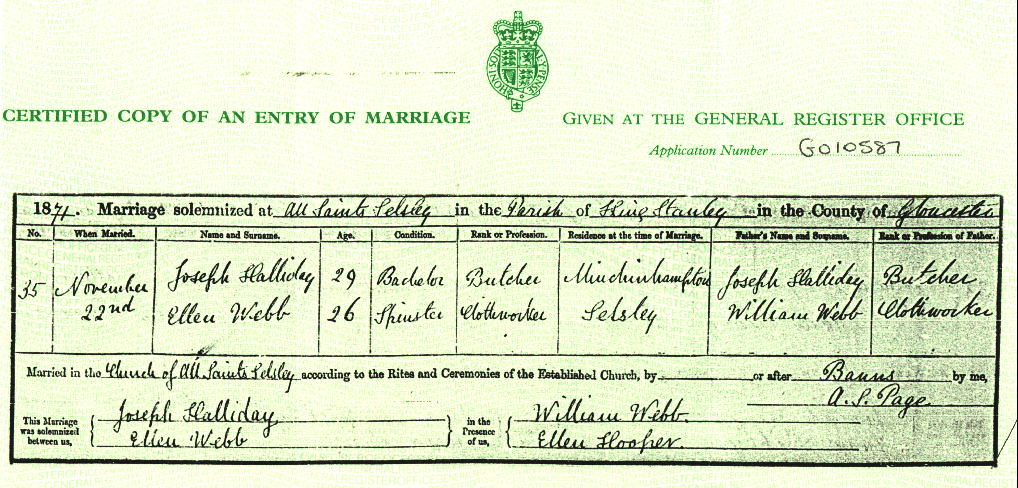 HONI SOIT QUI MAL Y PENSE
CERTIFIED COPY OF AN ENTRY OF MARRIAGE
GIVEN AT THE GENERAL REGISTER OFFICE
Application Number G010587
1871. Marriage solemnized at All Saints Selsley in the Parish of King Stanley in the County of Gloucester
No. When Married. Name and Surname. Age. Condition. Rank or Profession. Residence at the time of Marriage. Father's Name and Surname. Rank or Profession of Father.
35 November 22nd Joseph Halliday 29 Bachelor Butcher Minchinhampton Joseph Halliday Butcher
Ellen Webb 26 Spinster Clothworker Selsley William Webb Clothworker
Married in the Church of All Saints Selsley according to the Rites and Ceremonies of the Established Church, by or after Banns by me,
A. P. Page
This Marriage was solemnized between us, Joseph Halliday in the Presence of us, William Webb
Ellen Webb Ellen Hooper